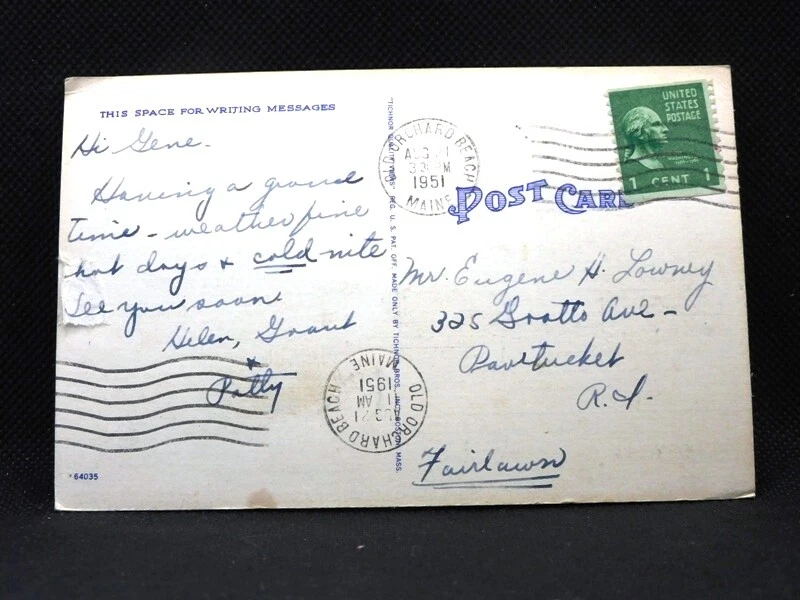 THIS SPACE FOR WRITING MESSAGES
Hi Gene -
Having a grand
time - weather fine
hot days & cold nite
See you soon
Helen, Grant
&
Patty
64035
TICHNOR QUALITY VIEWS REG. U. S. PAT. OFF. MADE ONLY BY TICHNOR BROS., INC., BOSTON, MASS.
OLD ORCHARD BEACH
AUG 21
PM
1951
MAINE
POST CARD
UNITED
STATES
POSTAGE
1 CENT 1
Mr. Eugene H. Lowney
325 Grotto Ave -
Pawtucket
R.I.
Fairlawn
OLD ORCHARD BEACH
AUG 21
AM
1951
MAINE